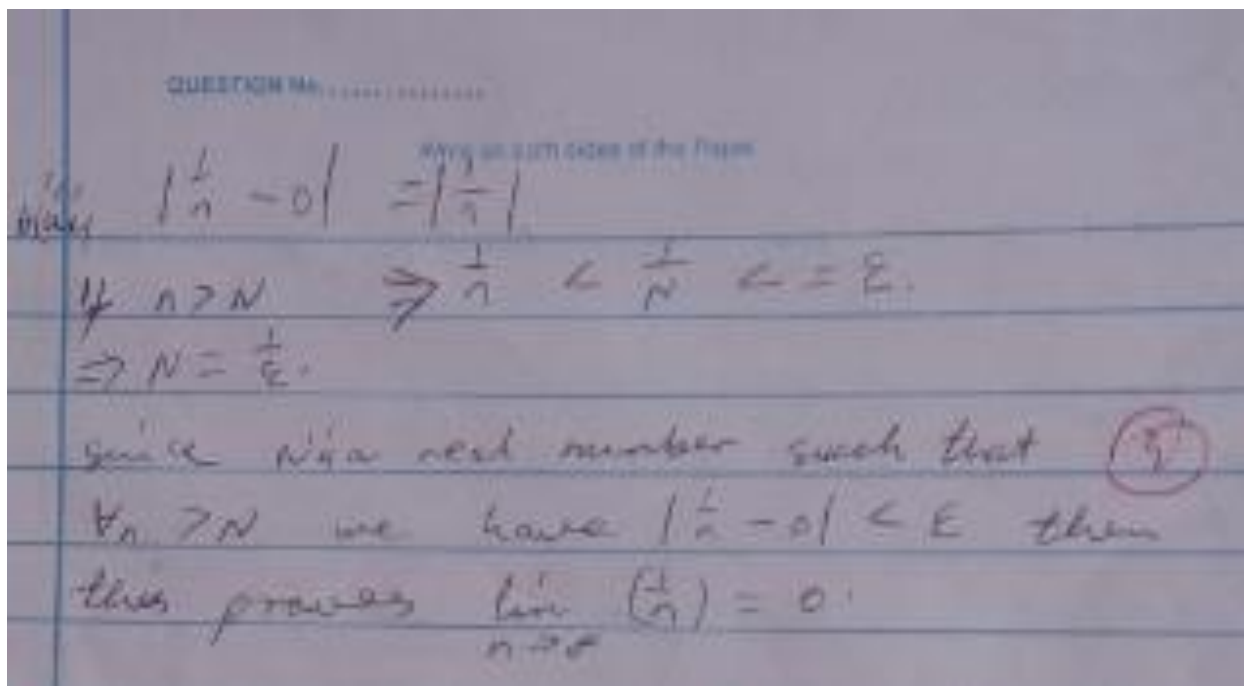 QUESTION No................
Write on both sides of the Paper
|1/n - 0| = |1/n|
If n > N ⇒ 1/n < 1/N < = ε.
⇒ N = 1/ε.
since N is a real number such that
∀n > N we have |1/n - 0| < ε then
this proves lim (1/n) = 0.
n→